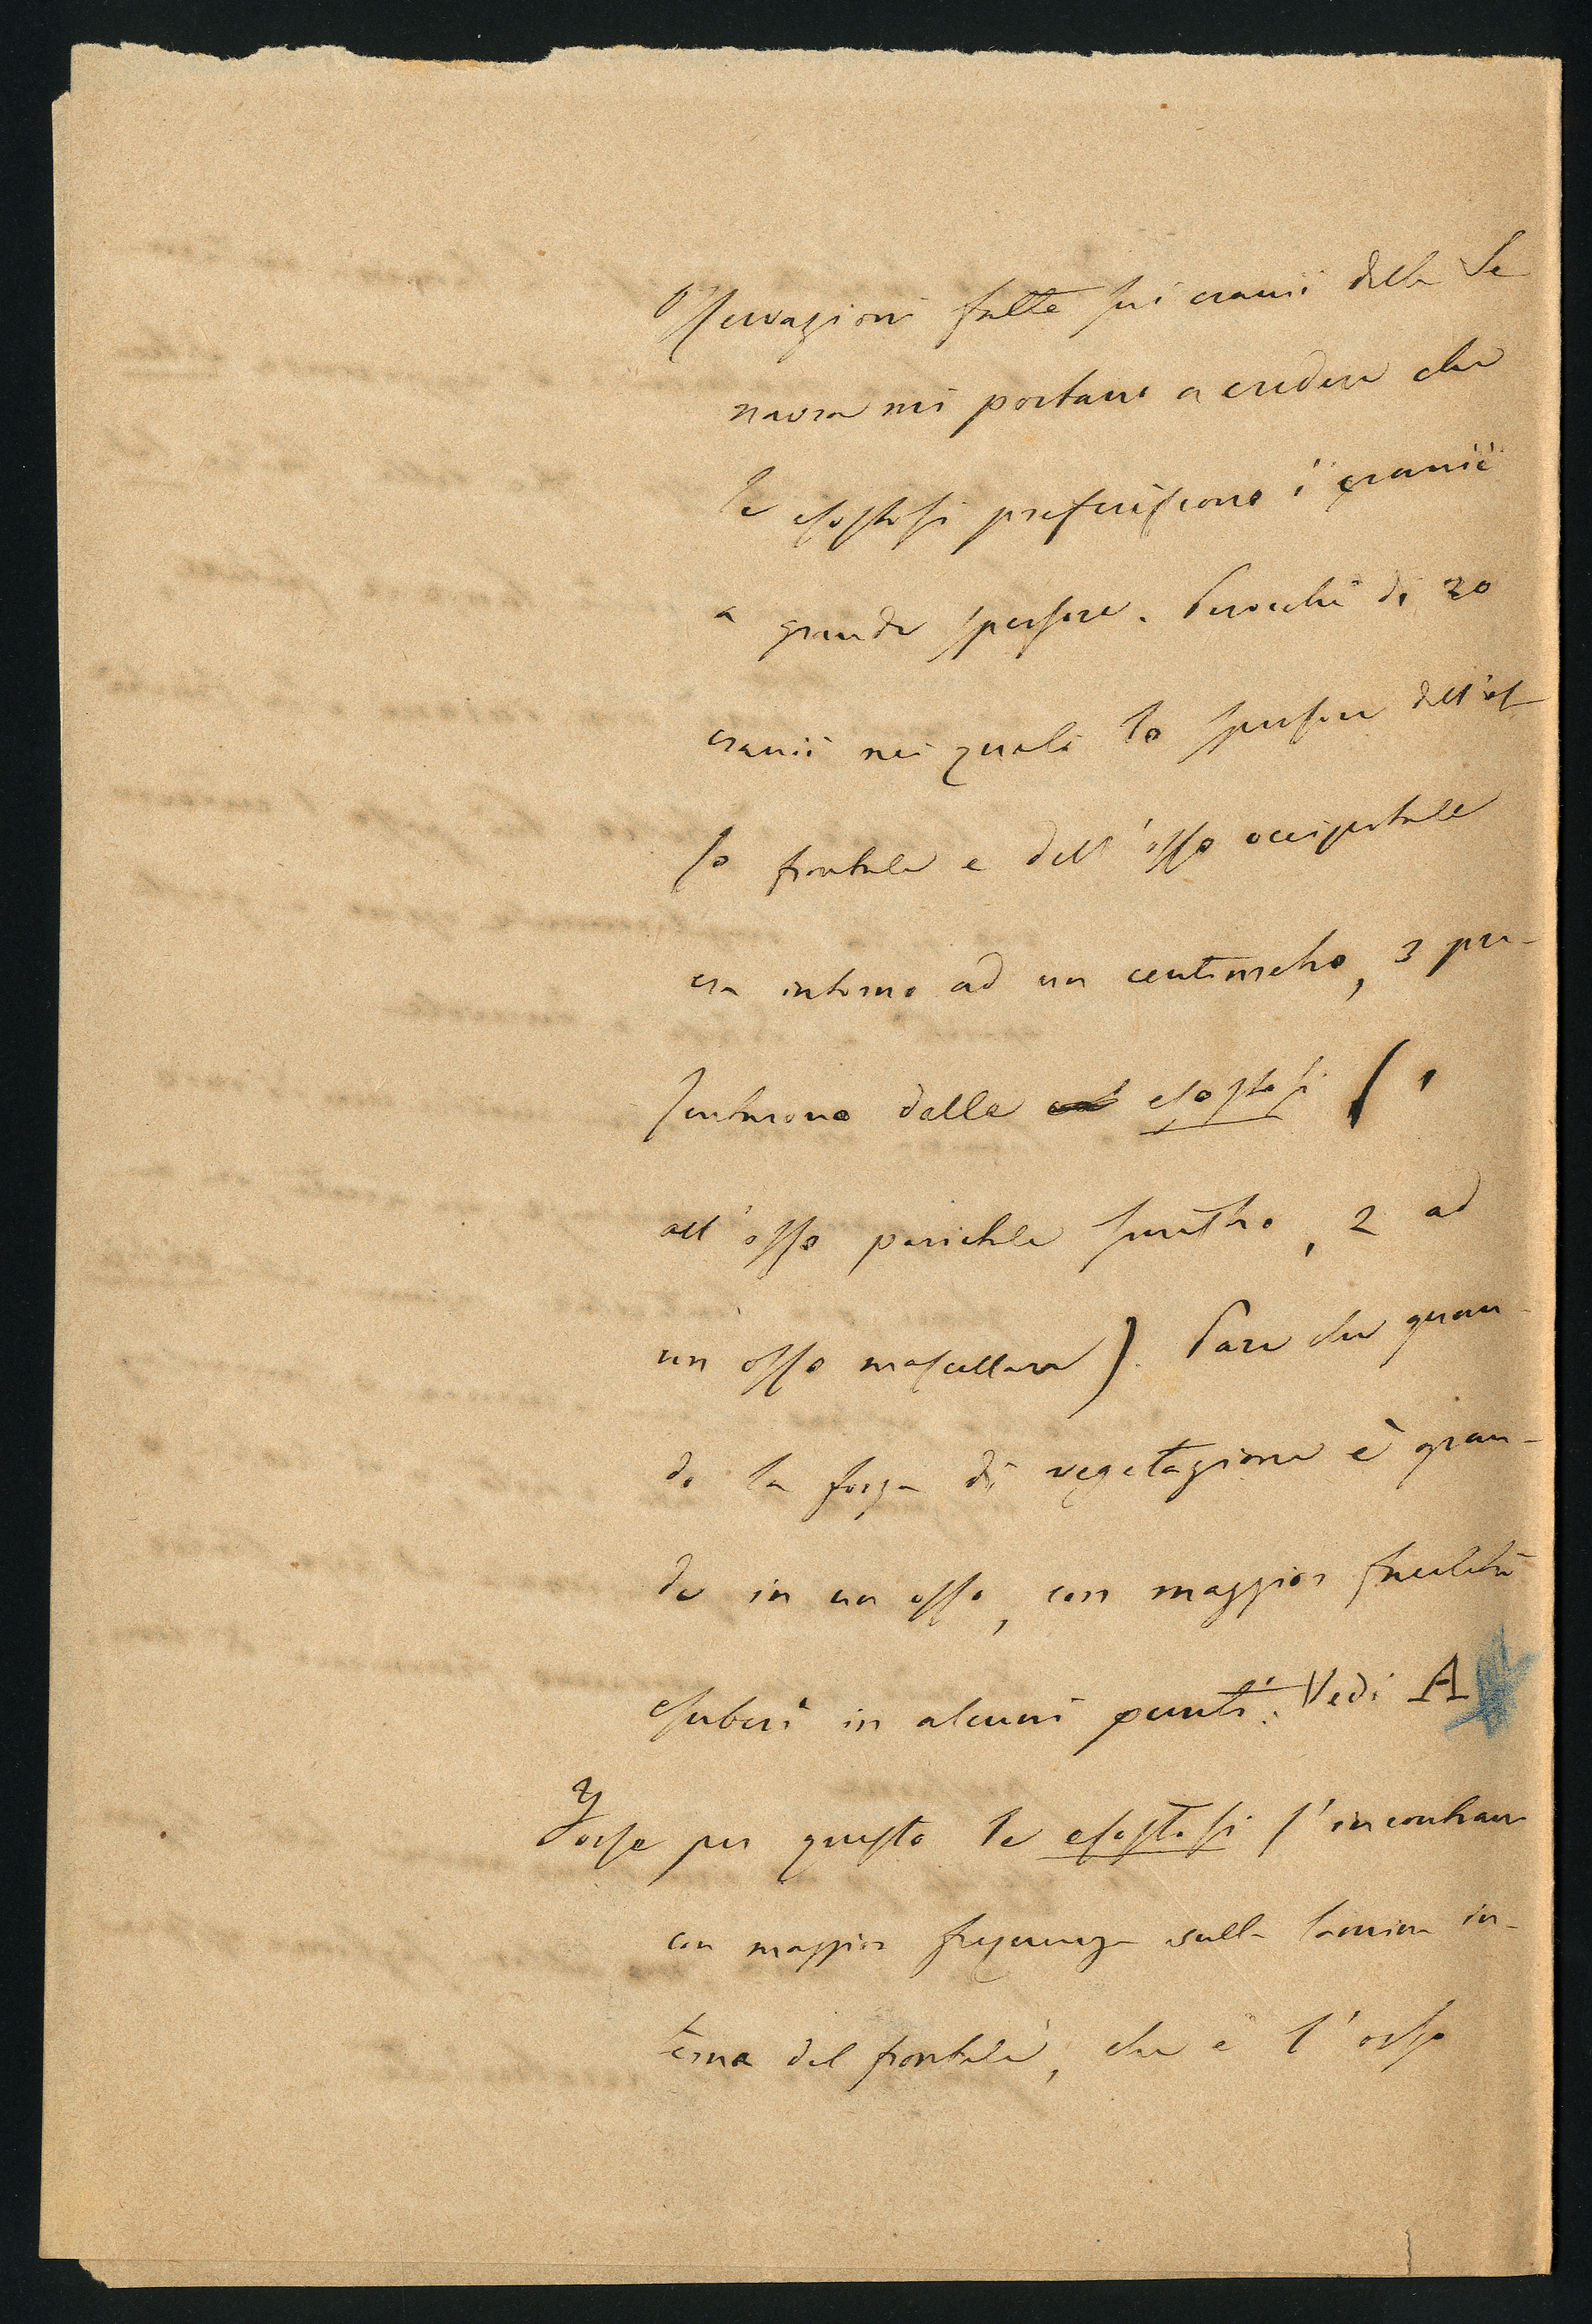 Osservazioni fatte sui cranii della Se
navra mi portano a credere che
le esostosi preferiscono i cranii
a grande spessore. Perocchè di 20
cranii nei quali lo spessore dell'os
so frontale e dell'osso occipitale
era intorno ad un centimetro, 3 pre-
sentarono delle esostosi (1
all'osso parietale sinistro, 2 ad
un osso mascellare). Pare che quan-
do la forza di vegetazione è gran-
de in un osso, con maggior facilità
esuberi in alcuni punti. Vedi A
Forse per questo le esostosi s'incontrano
con maggior frequenza sulla lamina in-
terna del frontale, che è l'osso